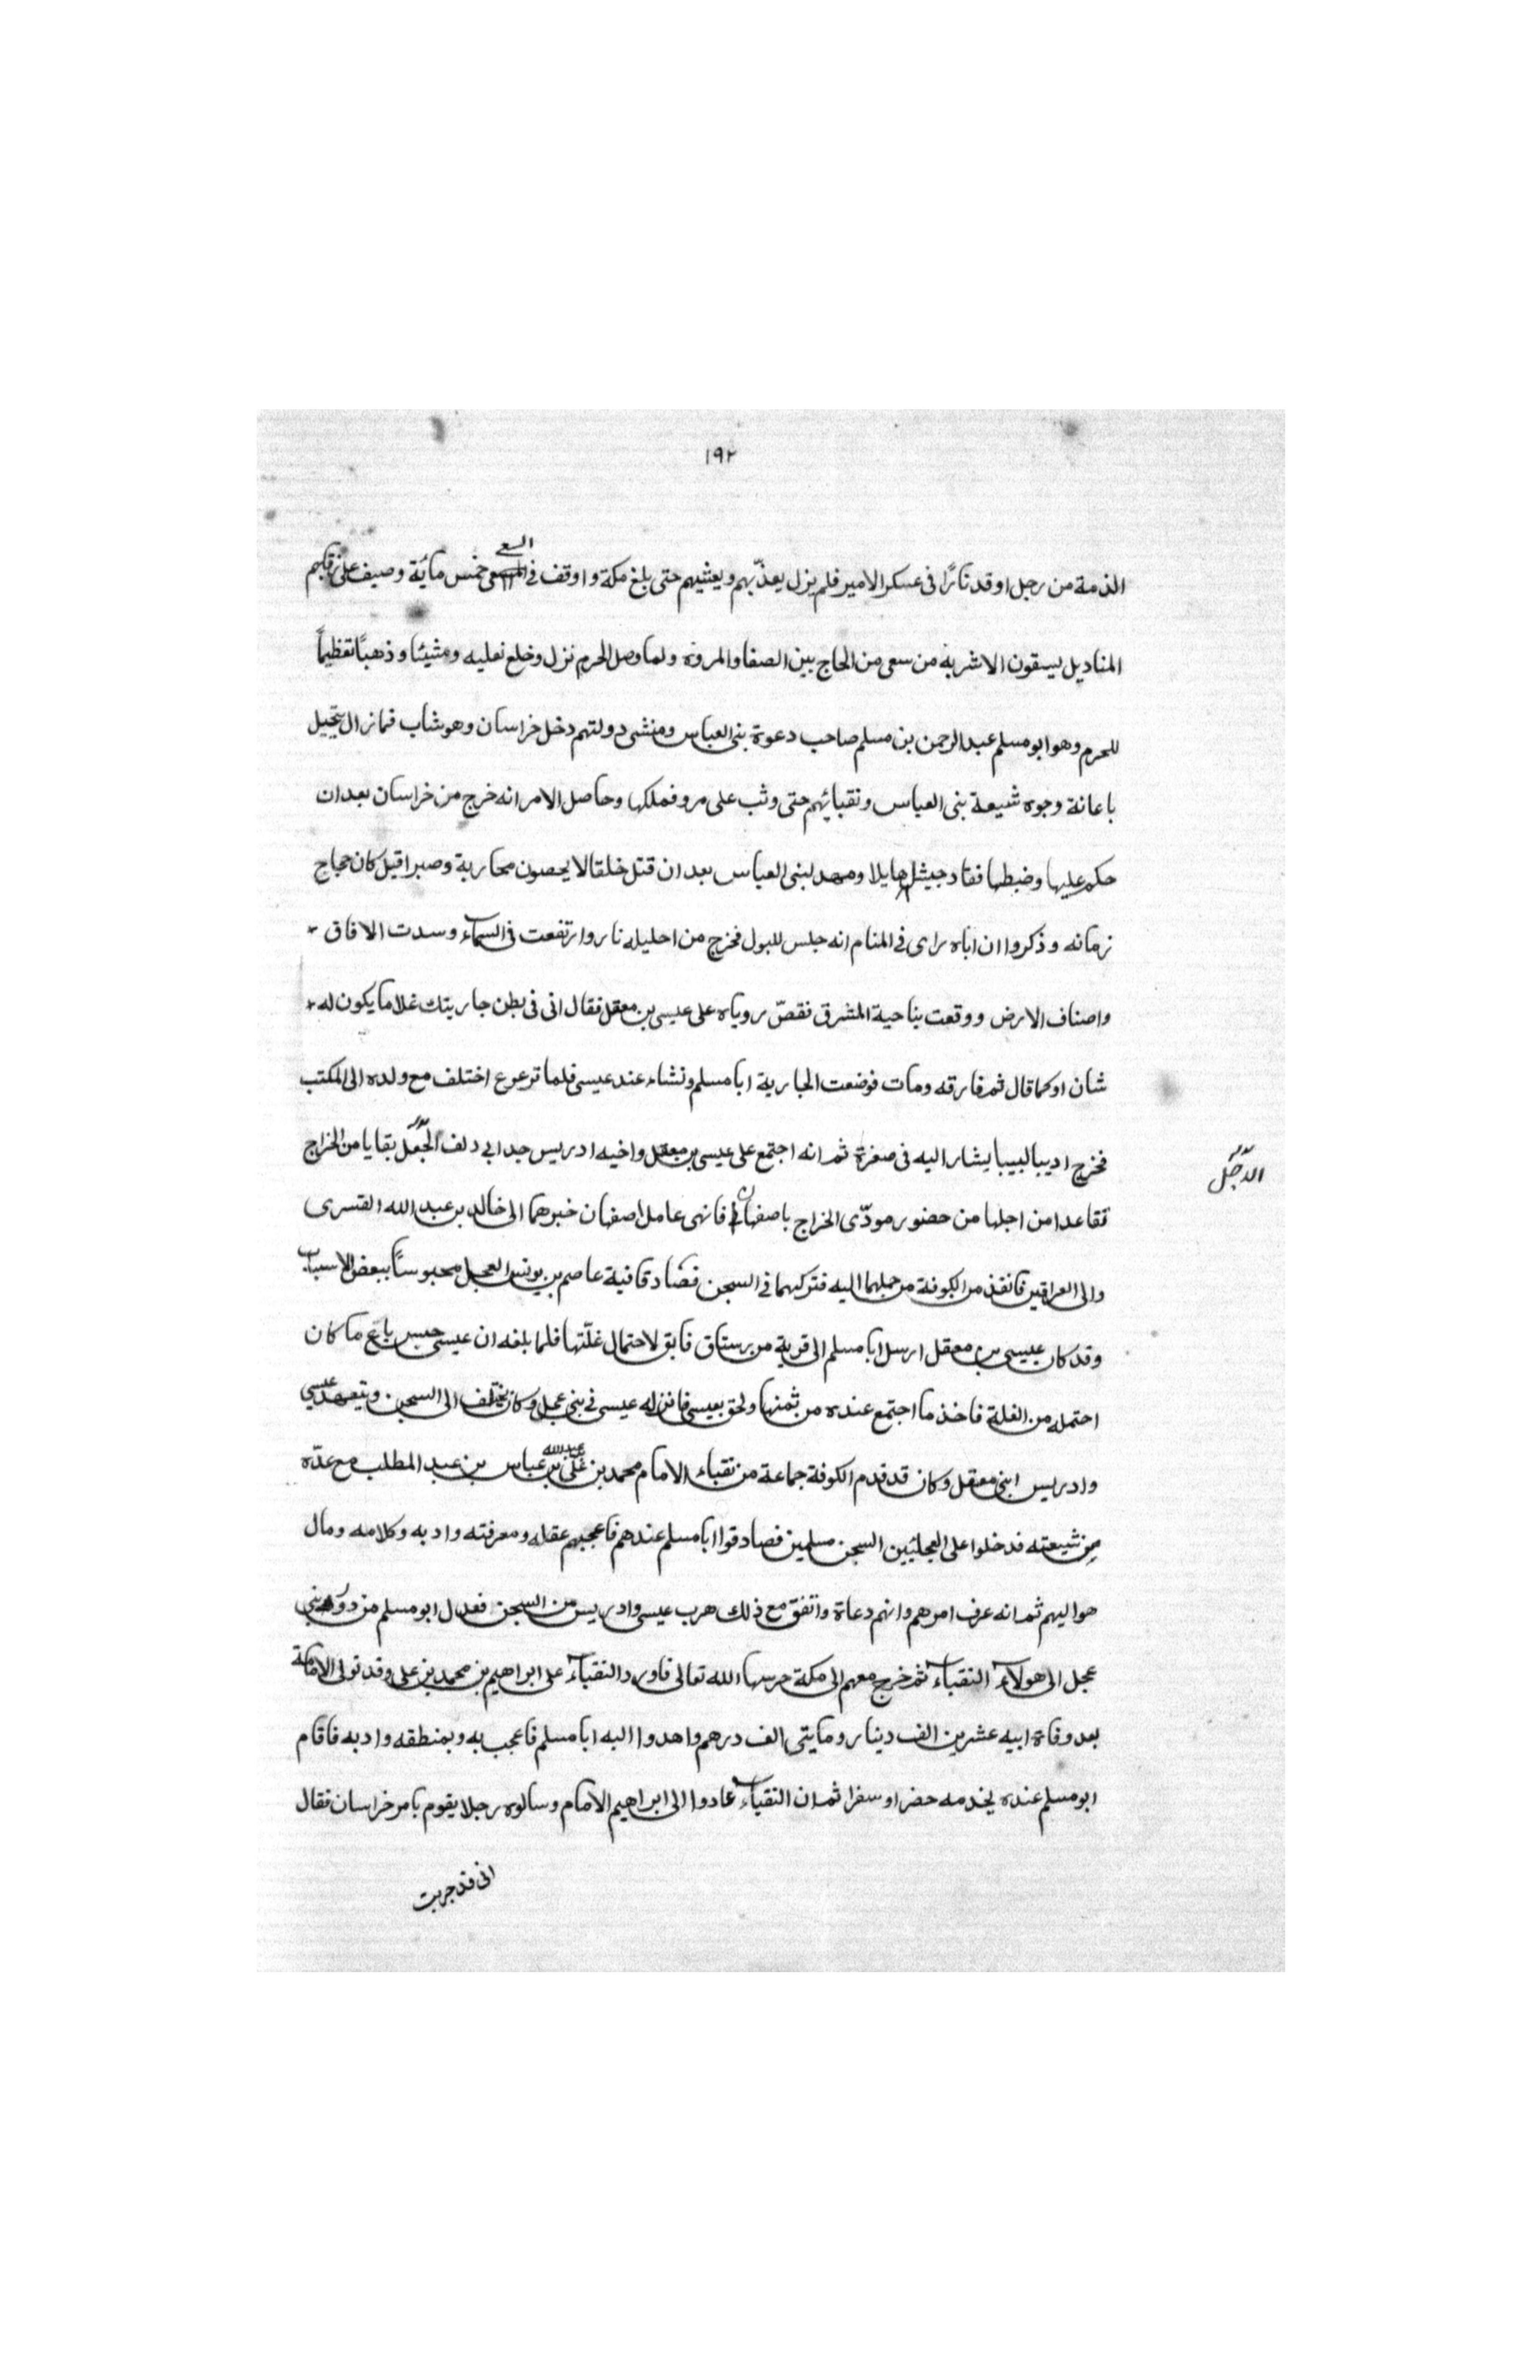 ١٩٢
الذمة من رجل اوقد نارًا فى عسكر الامير فلم يزل يعذّبهم ويعشيهم حتى بلغ مكة واوقف فى السعى خمس ماية وصيف على رقابهم
المناديل يسقون الاشربة من سعى من الحاج بين الصفا والمروة ولما وصل الحرم نزل وخلع نعليه ومشينا وذهبا تعظيماً
للحرم وهو ابو مسلم عبد الرحمن بن مسلم صاحب دعوة بنى العباس ومنشى دولتهم دخل خراسان وهو شاب فما زال يتحيل
باعانة وجوه شيعة بنى العباس ونقبائهم حتى وثب على مرو فملكها وحاصل الامر انه خرج من خراسان بعد ان
حكم عليها وضبطها فقاد جيشا هايلا ومهد لبنى العباس بعد ان قتل خلقا لا يحصون محاربة وصبرا قيل كان حجاج
زمانه وذكروا ان اباه راى فى المنام انه جلس للبول فخرج من احليله نار وارتفعت فى السماء وسدت الافاق
واصناف الارض ووقعت بناحية المشرق فقصّ روياه على عيسى بن معقل فقال انى فى بطن جاريتك غلاما يكون له
شان اوكما قال ثم فارقه ومات فوضعت الجارية ابا مسلم ونشاء عند عيسى فلما ترعرع اختلف مع ولده الى المكتب
فخرج اديبا لبيبا يشار اليه فى صغرة ثم انه اجتمع على عيسى بن معقل واخيه ادريس جد ابى دلف العجل بقايا من الخراج
تقاعدا من اجلها من حضور مودّى الخراج باصفهان فانهى عامل اصفهان خبرهما الى خالد بن عبد الله القسرى
والى العراقين فانفذ من الكوفة من حملهما اليه فتركهما فى السجن فصادفا فيه عاصم بن يونس العجل محبوساً ببعض الاسباب
وقد كان عيسى بن معقل ارسل ابا مسلم الى قرية من رستاق فابق لاحتمال غلّتها فلما بلغه ان عيسى حبس باع ما كان
احتمله من الغلة فاخذ ما اجتمع عنده من ثمنها ولحق بعيسى فانزله عيسى فى بنى عجل وكان يختلف الى السجن ويتعهد عيسى
وادريس ابنى معقل وكان قد قدم الكوفة جماعة من نقباء الامام محمد بن على بن عبد الله بن عباس بن عبد المطلب مع عدّة
من شيعته فدخلوا على العجليين السجن مسلمين فصادقوا ابا مسلم عندهم فاعجبهم عقله ومعرفته وادبه وكلامه ومال
هو اليهم ثم انه عرف امرهم وانهم دعاة واتفق مع ذلك هرب عيسى وادريس من السجن فعدل ابو مسلم من دور بنى
عجل الى هولاء النقباء ثم خرج معهم الى مكة حرسها الله تعالى فاورد النقباء على ابراهيم بن محمد بن على وقد تولى الامامة
بعد وفاة ابيه عشرين الف دينار ومايتى الف درهم واهدوا اليه ابا مسلم فاعجب به وبمنطقه وادبه فاقام
ابو مسلم عنده يخدمه حضرا وسفرا ثم ان النقباء عادوا الى ابراهيم الامام وسالوه رجلا يقوم بامر خراسان فقال
انى قد جربت